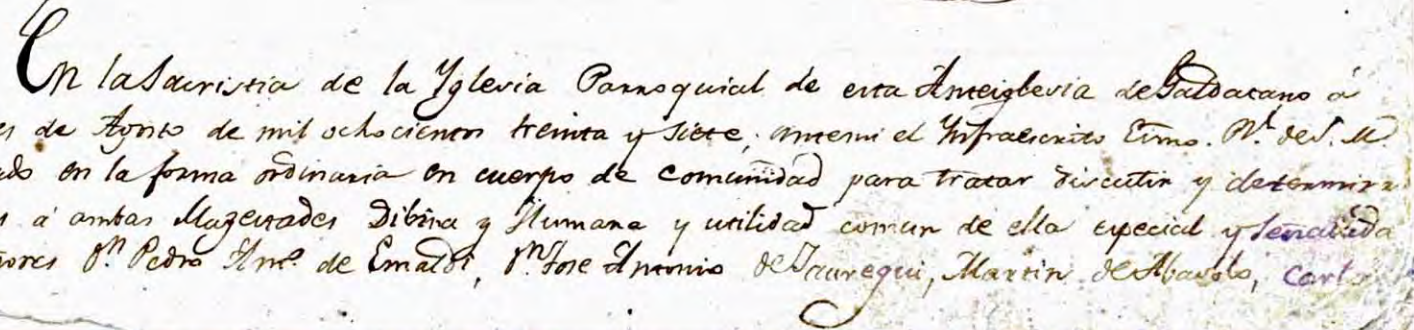 En la Sacristia de la Yglesia Parroquial de esta Anteiglesia de Galdacano á
de Agosto de mil ochocientos treinta y siete, antemi el Ynfraescrito Essno. Rl. de S. M.
en la forma ordinaria en cuerpo de comunidad para tratar discutir y determina
á ambas Magestades Dibina y Humana y utilidad comun de ella especial y señalada
ñores Dn. Pedro Anto. de Emaldi, Dn. Jose Antonio de Jauregui, Martin de Abasolo, Carlos